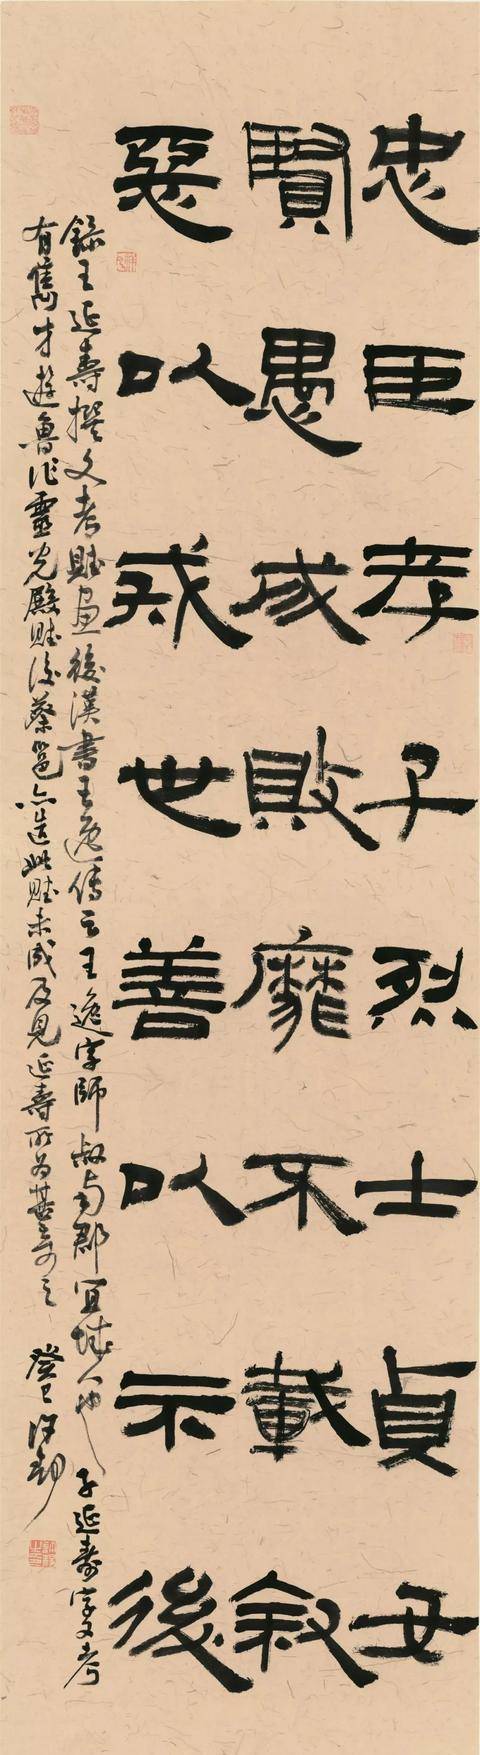 忠臣孝子烈士貞女
賢愚成敗靡不載敘
惡以戒世善以示後
錄王延壽撰文考賦畫後漢書王逸傳云王逸字師叔南郡宜城人也子延壽字文考
有雋才遊魯作靈光殿賦後蔡邕亦造此賦未成及見延壽所為甚奇之 癸巳